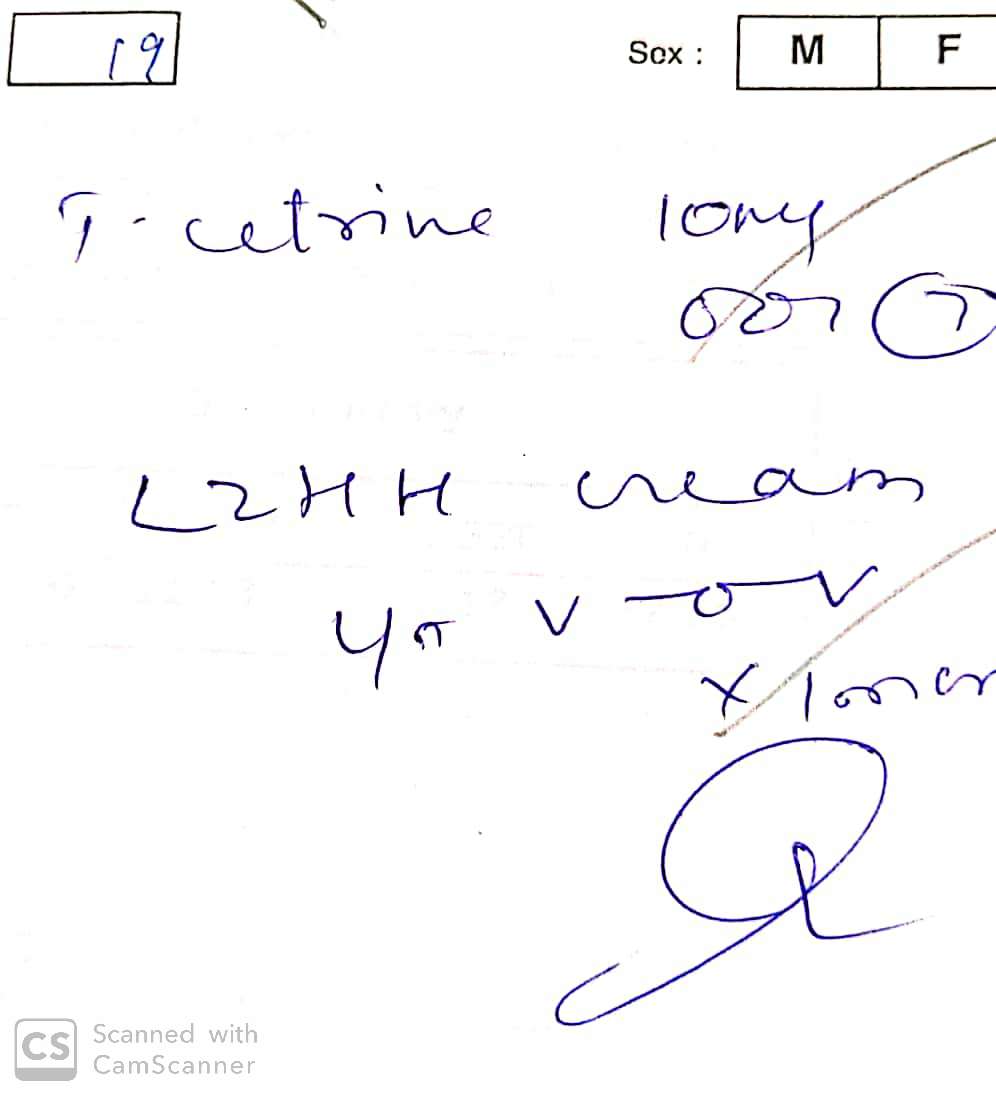 19 Sex : M F
T-cetrine 10mg
7
L2HH cream
v-o-v
x 1
CS Scanned with
CamScanner